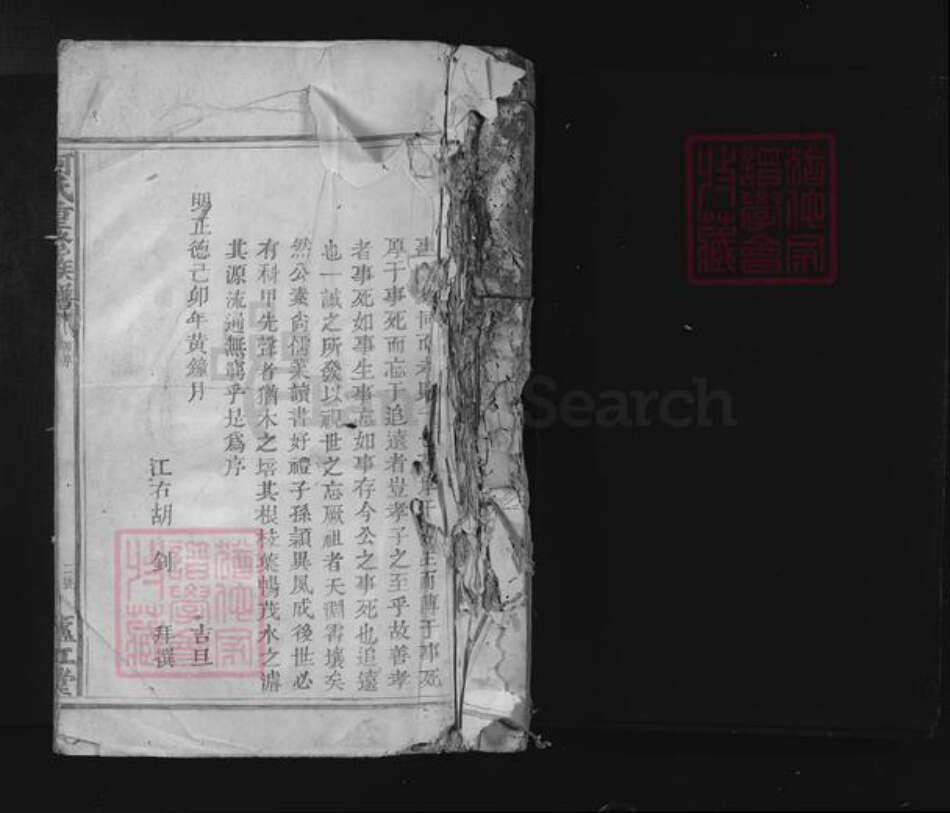 厚于事死而忘于追遠者豈孝子之至乎故善孝
者事死如事生事忘如事存今公之事死也追遠
也一誠之所發以視世之忘厥祖者天淵霄壤矣
然公素尙儒業讀書好禮子孫穎異夙成後世必
有科甲先聲者猶木之培其根枝葉暢茂水之濬
其源流通無窮乎是爲序
明正德己卯年黃鐘月 吉旦
江右胡 釗 拜撰
何氏重修族譜
廬江堂
猶他家
譜學會
特藏
Search